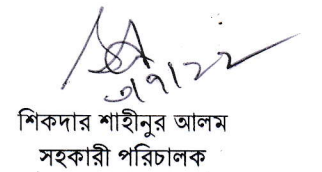 ৩/৭/২২
শিকদার শাহীনুর আলম
সহকারী পরিচালক